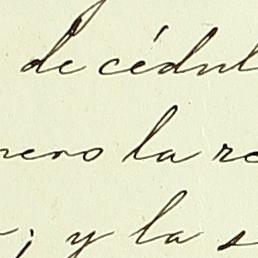 de cédul
nero la re
; y la s